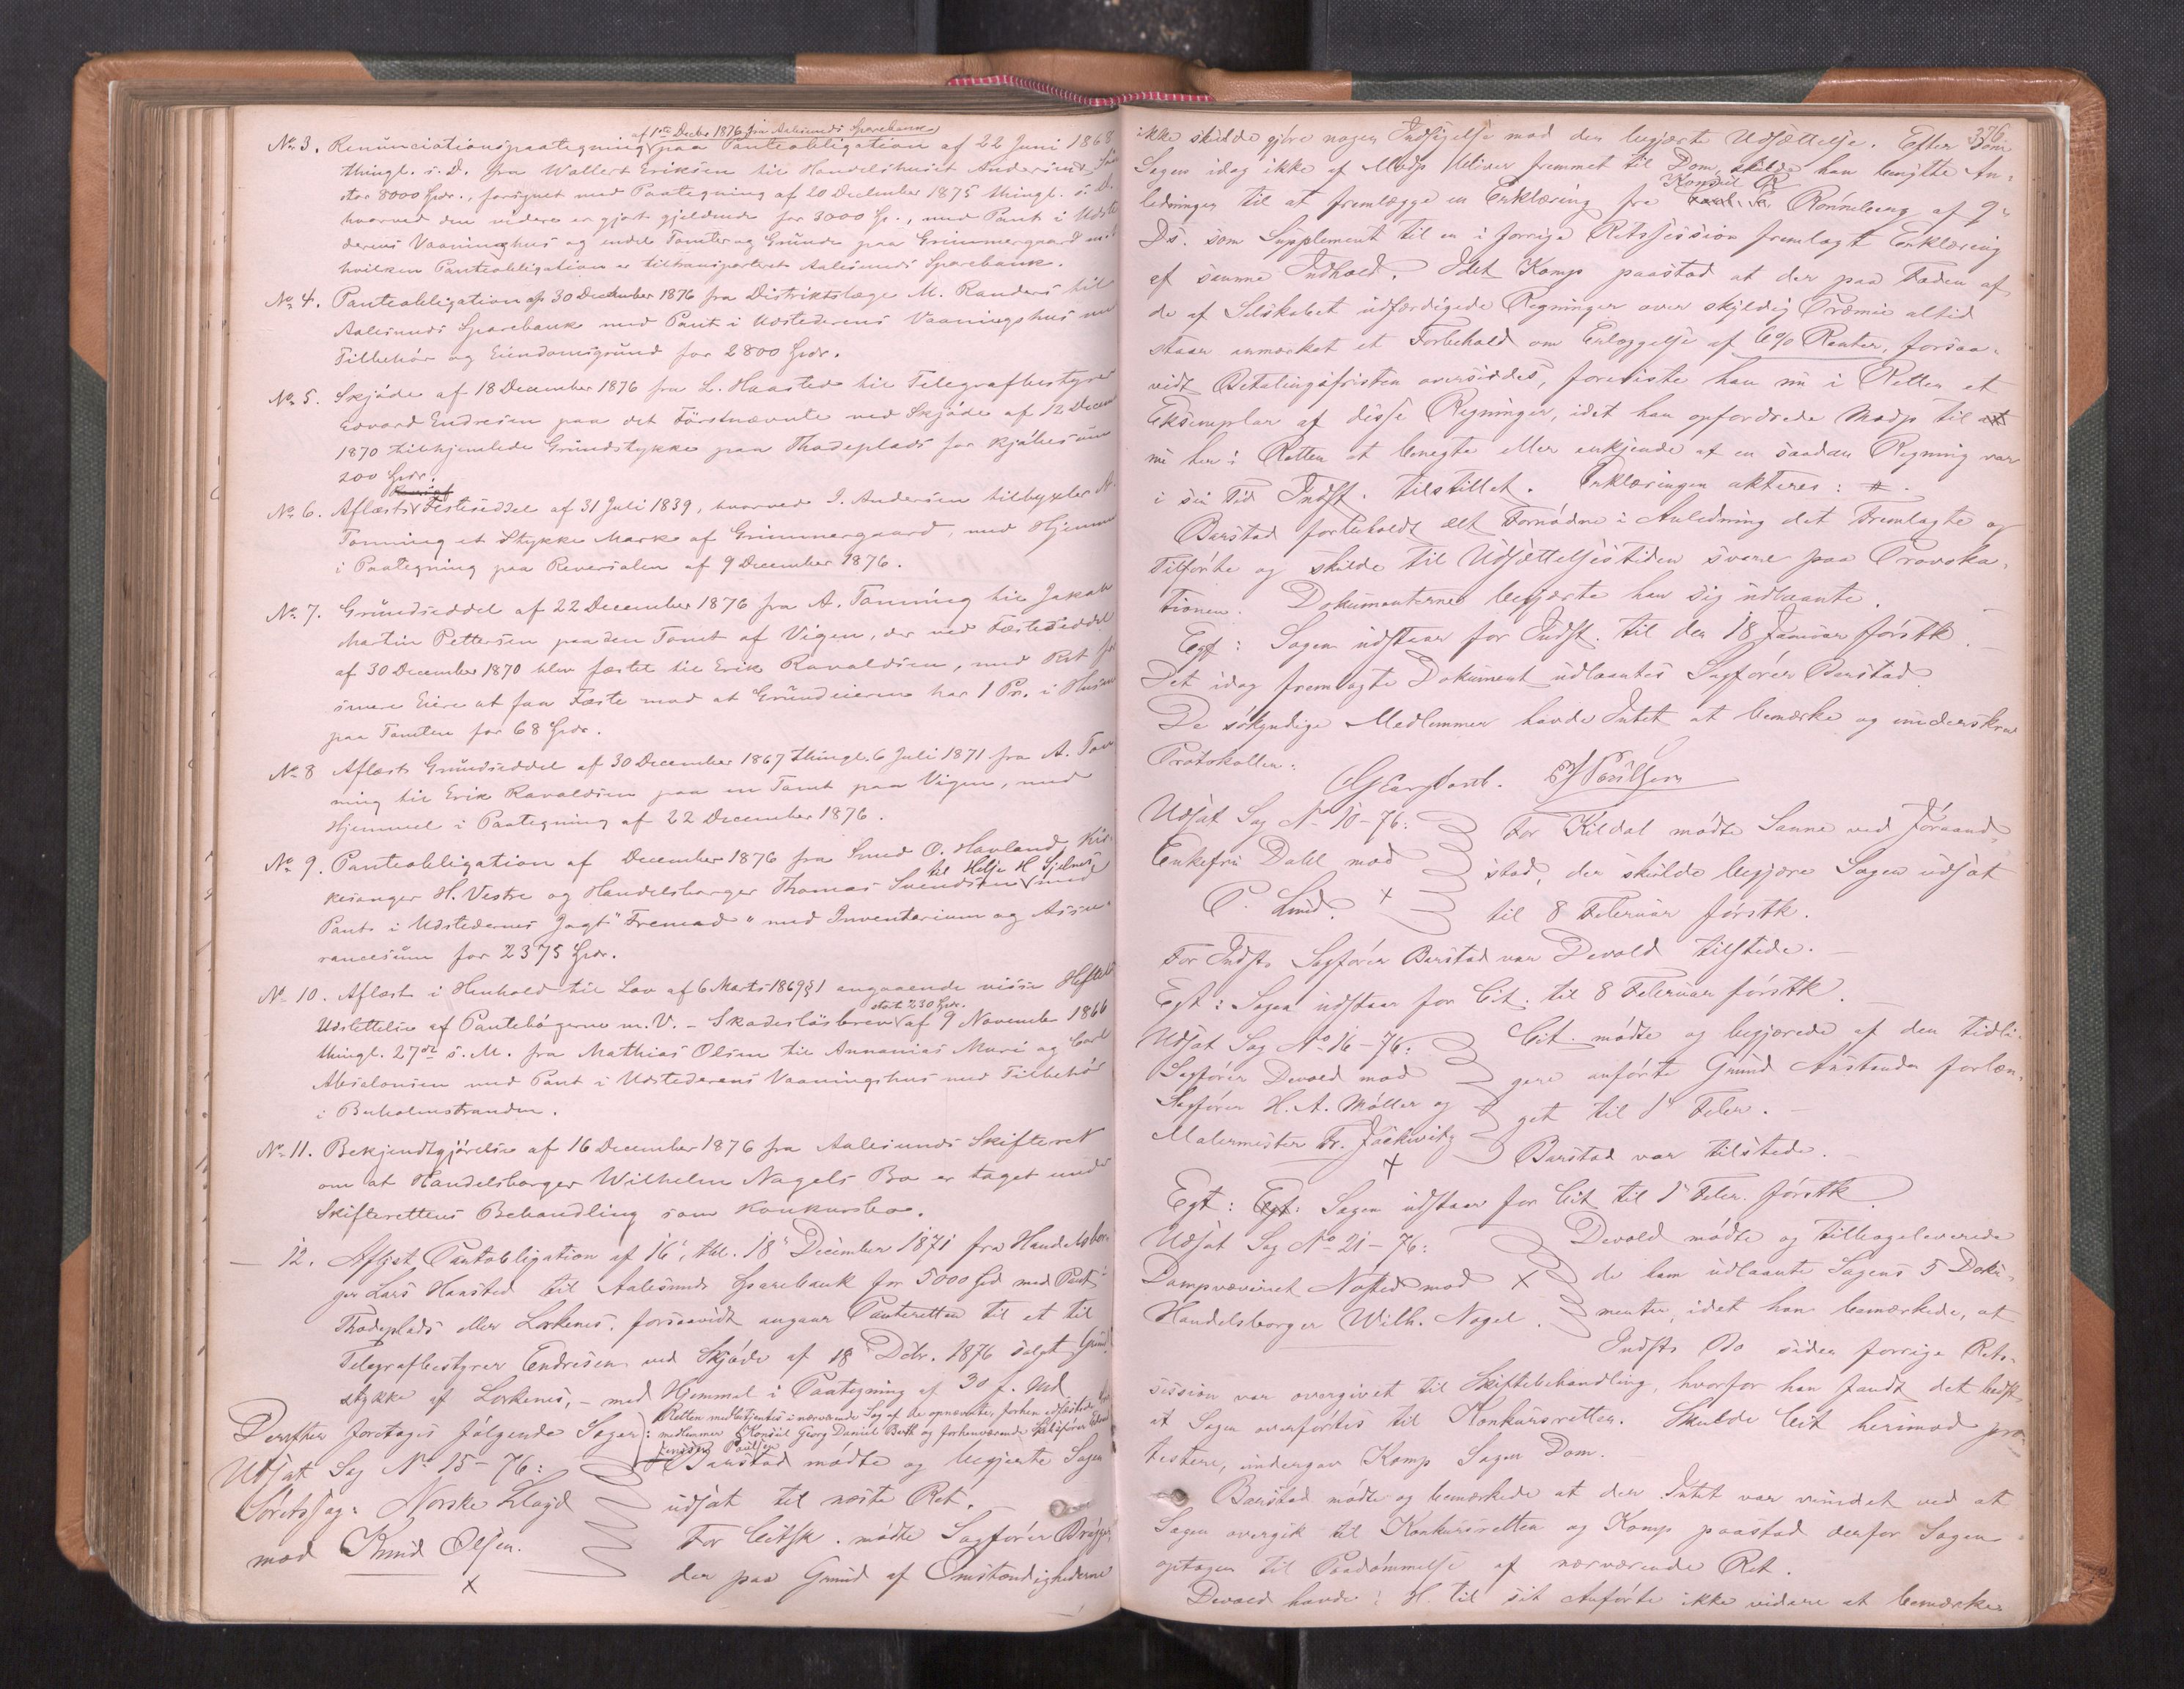 af 1ste Decbr 1876 fra Aalesunds Sparebank
No 3. Renunciationspaategning paa Panteobligation af 22 Juni 1868
thingl. s. D. fra Wallert Eriksen til Handelshuset Andersens
stor 8000 Spdr., forsynet med Paategning af 20 December 1875 thingl. s. D.
hvorved den videre er gjort gjeldende for 3000 Sp., med Pant i Udste
derens Vaaningshus og endel Tomter og Grunde paa Grimmergaard
hvilken Panteobligation er tiltransporteret Aalesunds Sparebank.
No 4. Panteobligation af 30 December 1876 fra Distriktslæge M. Randers til
Aalesunds Sparebank med Pant i Udstederens Vaaningshus
Tilbehør og Eiendomsgrund for 2800 Spdr.
No 5. Skjøde af 18 December 1876 fra L. Haasted til Telegrafbestyrer
Edvard Endresen paa det Förstnævnte ved Skjøde af 12 Decem
1870 tilhjemlede Grundstykke paa Thodeplads for Kjøbesum
200 Spdr.
No 6. Aflæst Festeseddel af 31 Juli 1839, hvorved J. Andersen tilbyxler A.
Tonning et Stykke Mark af Grimmergaard, med Hjemmel
i Paategning paa Reversalen af 9 December 1876.
No 7. Grundseddel af 22 December 1876 fra A. Tonning til Jakob
Martin Pettersen paa den Tomt af Vigen, der ved Fæsteseddel
af 30 December 1870 blev fæstet til Erik Ravaldsen, med Ret for
senere Eiere at faa Fæste mod at Grundeieren har 1 Pr. i Husene
paa Tomten for 68 Spdr.
No 8 Aflæst Grundseddel af 30 December 1867 thingl. 6 Juli 1871 fra A. Ton
ning til Erik Ravaldsen paa en Tomt paa Vigen, med
Hjemmel i Paategning af 22 December 1876.
No 9. Panteobligation af December 1876 fra Smed O. Havland, Kir-
til Helje H Gjelnes
kesanger H. Vestre og Handelsborger Thomas Svendsen med
Pant i Udstedernes Jagt "Fremad" med Inventarium og Assu-
rancesum for 2375 Spdr.
No 10. Aflæst i Henhold til Lov af 6 Marts 1869 § 1 angaaende visse Heftels
stort 230 Spdr.
Udslettelse af Pantebøgerne m. V. - Skadesløsbrev af 9 November 1866
thingl. 27de s. M. fra Mathias Olsen til Annanias Muri og Carl
Absalonsen med Pant i Udstederens Vaaningshus med Tilbehör
i Buholmstranden.
No 11. Bekjendtgjörelse af 16 December 1876 fra Aalesunds Skifteret
om at Handelsborger Wilhelm Nagels Bo er taget under
Skifterettens Behandling som Konkursbo.
12. Aflyst, Pantobligation af 16', thl. 18' December 1871 fra Handelsbor-
ger Lars Haasted til Aalesunds Sparebank for 5000 Spd med Pant
Thodeplads eller Lorkenes, forsaavidt angaar Panteretten til et til
Telegrafbestyrer Endresen ved Skjøde af 18' Dcbr. 1876 solgt Grund
stykke af Lorkenes, - med Hjemmel i Paategning af 30 f. Md.
Derefter foretoges følgende Sager:
Retten medbetjentes i nærværende Sag af de opnævnte, forhen edfæstede
medlemmer Konsul Georg Daniel Barth og forhenværende Skibsfører
Jensen Paulsen
Udsat Sag No 15-76:
Barstad mødte og begjerte Sagen
Søretssag: Norske Lloyd
udsat til næste Ret.
mod Knud Olsen.
For Citsk. mødte Sagfører
der paa Grund af Omstændighederne
376
ikke skulde gjøre nogen Indsigelse mod den begjærte Udsættelse. Efter som
Sagen idag ikke af Modp bliver fremmet til Dom, skulde han benytte An-
Konsul
ledningen til at fremlægge en Erklæring fra Rønneberg af 9'
Ds. som Supplement til en i forrige Retssession fremlagt Erklæring
af samme Indhold. Idet Komp paastod at der paa Foden af
de af Selskabet udfærdigede Regninger over skyldig Præmie altid
staar anmærket et Forbehold om Erlæggelse af 6% Renter, forsaa-
vidt Betalingsfristen oversiddes, foreviste han nu i Retten et
Eksemplar af disse Regninger, idet han opfordrede Modp til at
nu her i Retten at benegte eller erkjende at en saadan Regning var
i sin Tid Indst. tilstillet. Erklæringen akteres: #.
Barstad forbeholdt alt Fornødne i Anledning det Fremlagte og
Tilførte og skulde til Udsættelsestiden svare paa Provoka-
tionen. Dokumenterne begjærte han sig udlaante.
Egt: Sagen udstaar for Indst. til den 18 Januar førstk.
Det idag fremlagte Dokument udlaantes Sagfører Barstad.
De søkyndige Medlemmer havde Intet at bemærke og underskrev
Protokollen.
Udsat Sag No 10-76:
For Kildal mødte Sanne ved Jöraand-
Enkefru Dahl mod
stad, der skulde begjære Sagen udsat
P. Lund.
til 8 Februar førstk.
For Indsts Sagfører Barstad var Devold tilstede.
Egt: Sagen udstaar for Cit. til 8 Februar førstk.
Udsat Sag No 16-76:
Cit. mødte og begjærede af den tidli-
Sagfører Devold mod
gere anførte Grund Anstanden forlæn-
Sagfører H. A. Møller og
get til 1' Febr.
Malermester Fr. Jackwitz
Barstad var tilstede.
Egt: Egt: Sagen udstaar for Cit til 1' Febr. førstk.
Udsat Sag No 21-76:
Devold mødte og tilbageleverede
Dampvæveriet Nosted mod
de ham udlaante Sagens 5 Doku-
Handelsborger Wilh. Nagel.
menter, idet han bemærkede, at
Indsts Bo siden forrige Rets-
session var overgivet til Skiftebehandling, hvorfor han fandt det bedst
at Sagen overførtes til Konkursretten. Skulde Cit herimod pro-
testere, undergav Komp Sagen Dom.
Barstad mødte og bemærkede at der Intet var vundet ved at
Sagen overgik til Konkursretten og Komp paastod derfor Sagen
optagen til Paadømmelse af nærværende Ret.
Devold havde i H. til sit Anførte ikke videre at bemærke